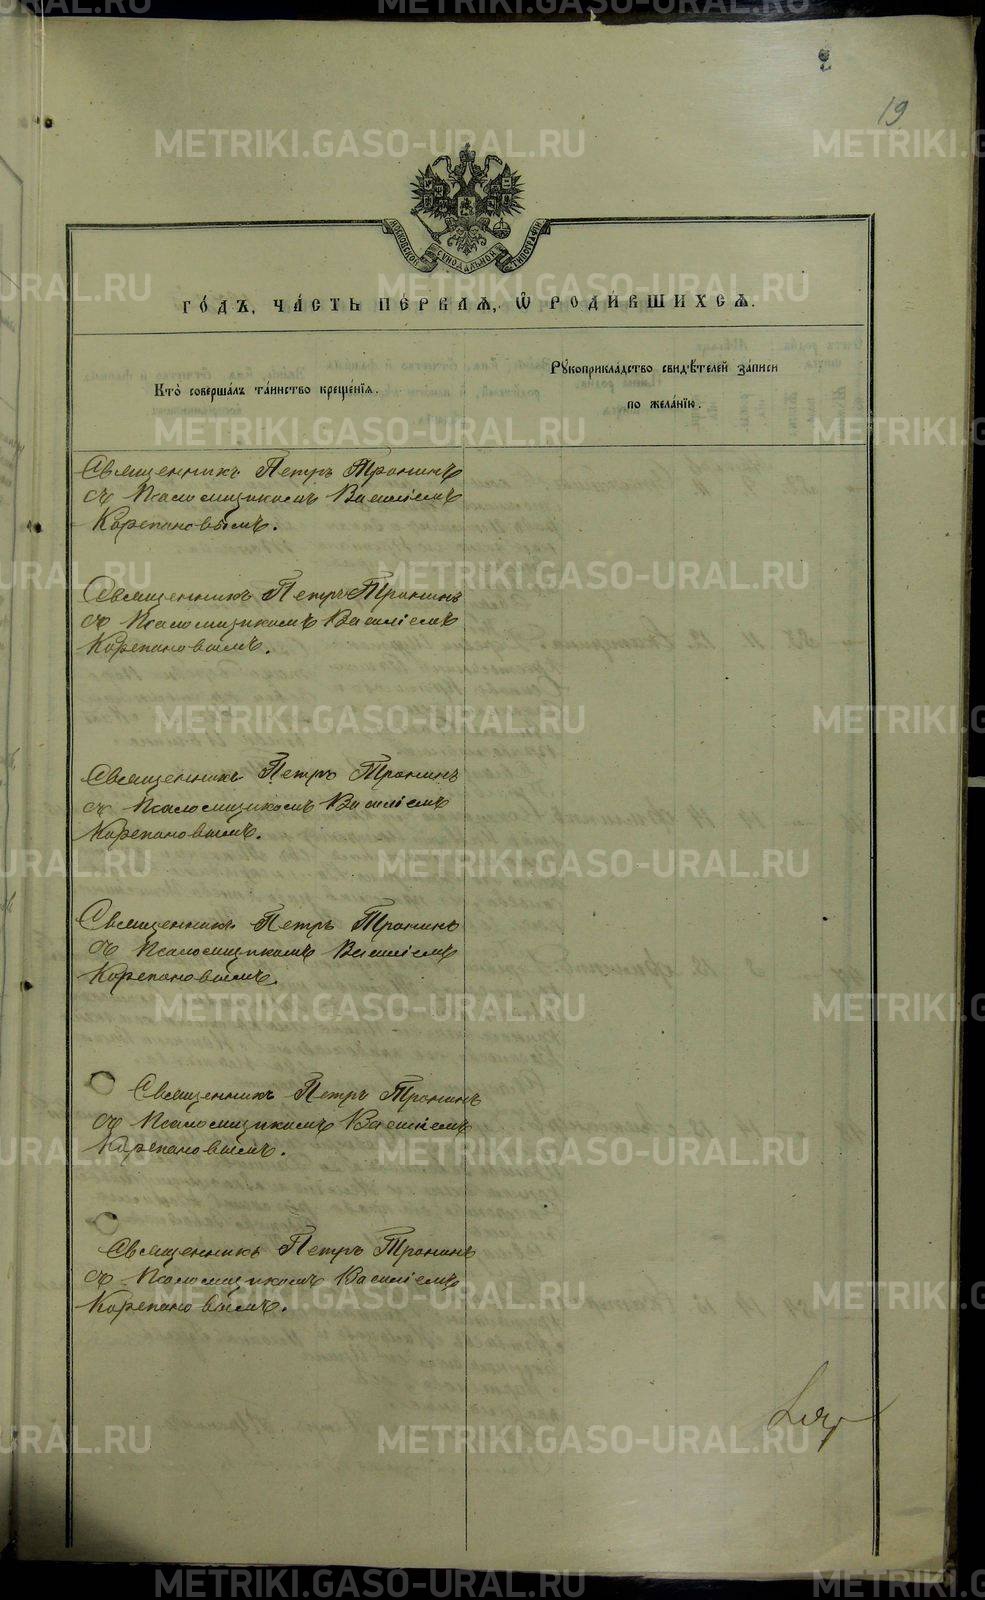 19
МОСКОВСКОЙ СѴНОДАЛЬНОЙ ТИПОГРАФІИ
ГО́ДЪ, ЧА́СТЬ ПЕ́РВАѦ, Ѡ҆ РОДИ́ВШИХСѦ.
Кто̀ соверша́лъ та́инство креще́нїѧ.
Рꙋкоприкла́дство свидѣ́телей за́писи
по жела́нїю.
Священникъ Петръ Тронинъ
съ Псаломщикомъ Василіемъ
Корепановымъ.
Священникъ Петръ Тронинъ
съ Псаломщикомъ Василіемъ
Корепановымъ.
Священникъ Петръ Тронинъ
съ Псаломщикомъ Василіемъ
Корепановымъ.
Священникъ Петръ Тронинъ
съ Псаломщикомъ Василіемъ
Корепановымъ.
Священникъ Петръ Тронинъ
съ Псаломщикомъ Василіемъ
Корепановымъ.
Священникъ Петръ Тронинъ
съ Псаломщикомъ Василіемъ
Корепановымъ.
METRIKI.GASO-URAL.RU